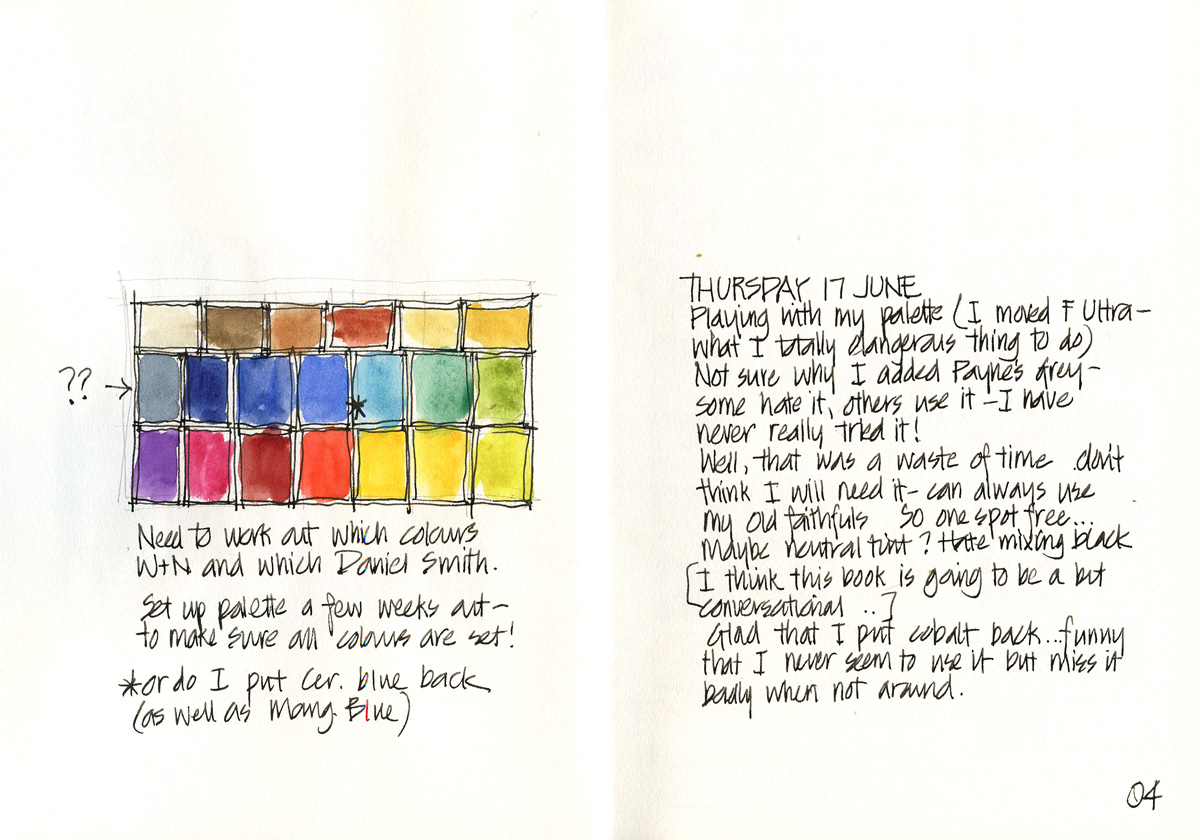 ??
*
Need to work out which colours
W+N and which Daniel Smith.
Set up palette a few weeks out –
to make sure all colours are set!
*or do I put Cer. blue back
(as well as Mang. Blue)
THURSDAY 17 JUNE
Playing with my palette (I moved F Ultra –
what I totally dangerous thing to do)
Not sure why I added Payne's grey –
some hate it, others use it – I have
never really tried it!
Well, that was a waste of time don't
think I will need it – can always use
my old faithfuls So one spot free...
Maybe neutral tint? Hate mixing black
[I think this book is going to be a but
conversational ..]
Glad that I put cobalt back...funny
that I never seem to use it but miss it
badly when not around.
04